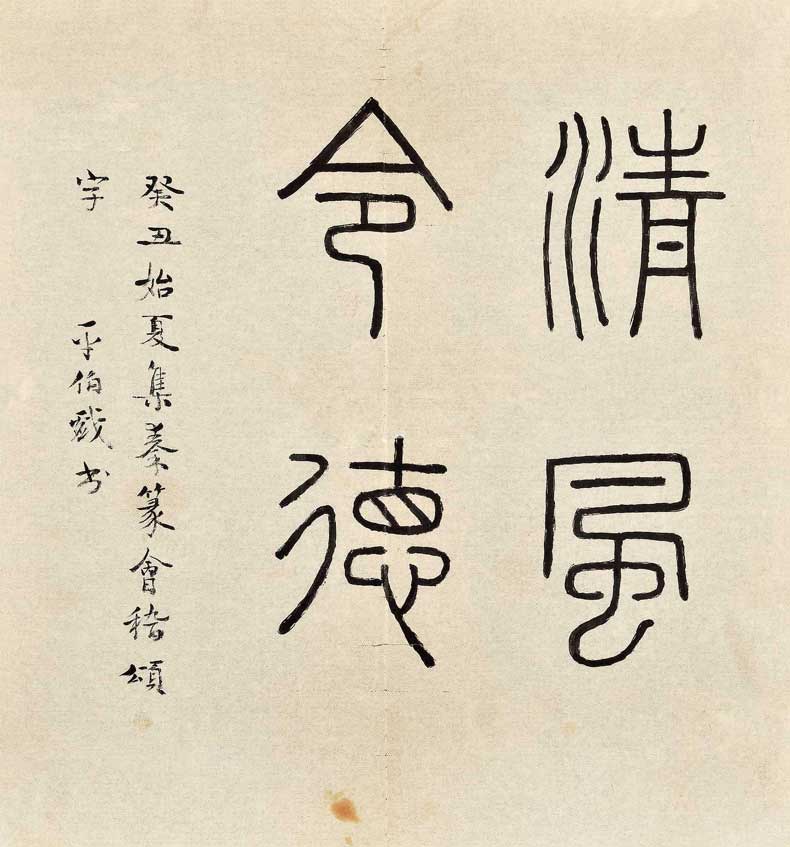 清風
令德
癸丑始夏集秦篆會稽頌
字
平伯戲书